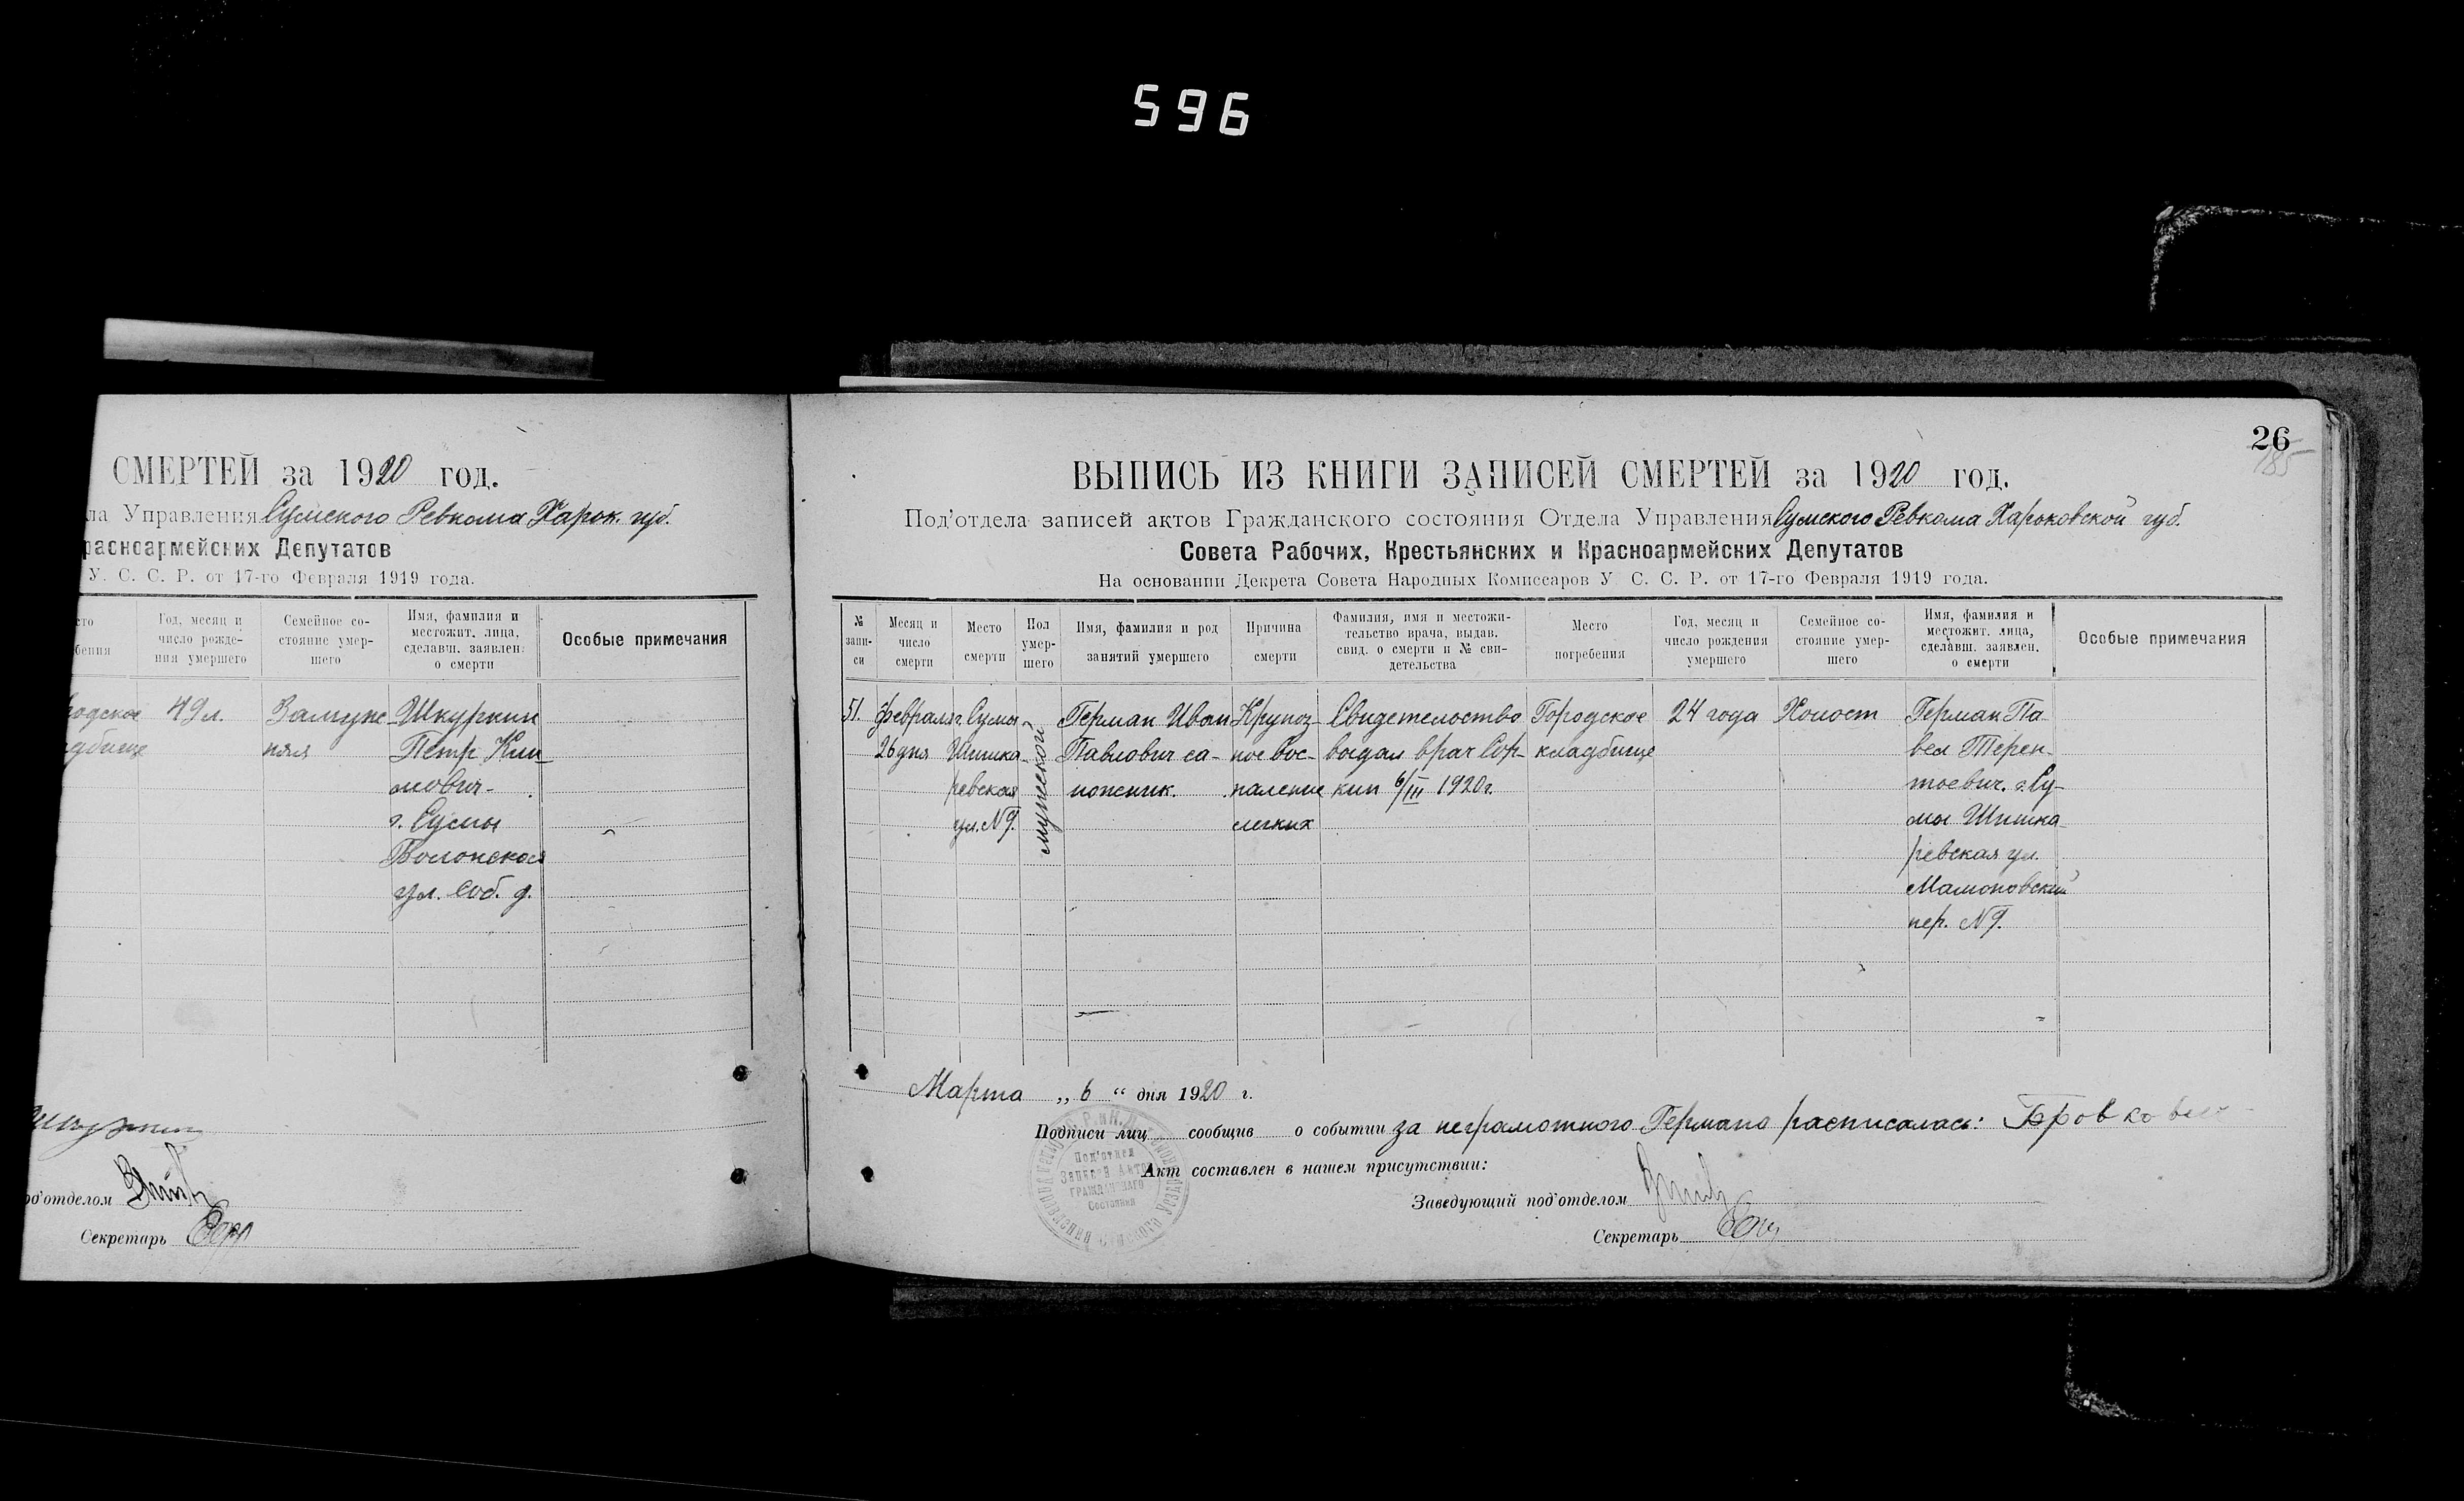 596
СМЕРТЕЙ за 1920 год.
Управления Сумского Ревкома Харьк. губ.
Красноармейских Депутатов
У. С. С. Р. от 17-го Февраля 1919 года.
Год, месяц и
число рожде-
ния умершего
Семейное со-
стояние умер-
шего
Имя, фамилия и
местожит. лица,
сделавш. заявлен.
о смерти
Особые примечания
49 л.
Замуж-
няя
Шкуркин
Петр Кли-
мович
г. Сумы
ул. соб. д.
под'отделом
Секретарь
26
185
ВЫПИСЬ ИЗ КНИГИ ЗАПИСЕЙ СМЕРТЕЙ за 1920 год.
Под'отдела записей актов Гражданского состояния Отдела Управления Сумского Ревкома Харьковской губ.
Совета Рабочих, Крестьянских и Красноармейских Депутатов
На основании Декрета Совета Народных Комиссаров У. С. С. Р. от 17-го Февраля 1919 года.
№
запи-
си
Месяц и
число
смерти
Место
смерти
Пол
умер-
шего
Имя, фамилия и род
занятий умершего
Причина
смерти
Фамилия, имя и местожи-
тельство врача, выдав.
свид. о смерти и № сви-
детельства
Место
погребения
Год, месяц и
число рождения
умершего
Семейное со-
стояние умер-
шего
Имя, фамилия и
местожит. лица,
сделавш. заявлен.
о смерти
Особые примечания
51.
февраля
26 дня
г. Сумы
Шишка-
ревская
ул. № 9.
мужской
Герман Иван
Павлович са-
пожник.
Крупоз-
ное вос-
паление
легких
Свидетельство
выдал врач Сор-
кин 6/III 1920 г.
Городское
кладбище
24 года
Холост
Герман Па-
вел Терен-
тьевич. г. Су-
мы Шишка-
ревская ул.
Мамоновский
пер. № 9.
Марта „ 6 “ дня 1920 г.
Подписи лиц сообщив о событии за неграмотного Германа расписалась:
Акт составлен в нашем присутствии:
Заведующий под'отделом
Секретарь
Под'отдел
Записей Актов
Гражданского
Состояния